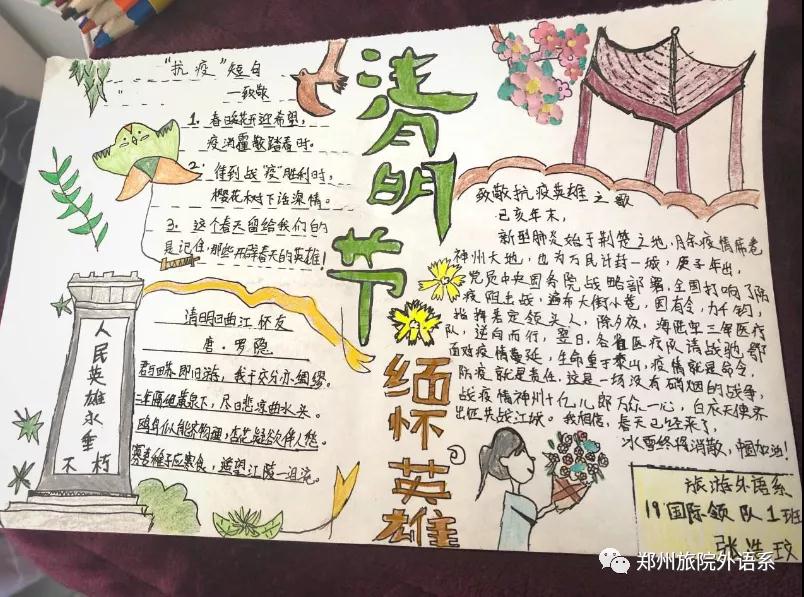 清明节
缅怀英雄
“抗疫”短句
—致敬
1. 春暖花开迎希望,
疫消霾散踏春时。
2. 佳到战“疫”胜利时,
樱花树下话深情。
3. 这个春天留给我们的
是记住那些开辟春天的英雄!
人民英雄永垂
不朽
清明日曲江怀友
唐·罗隐
君与田苏即旧游,我于交分亦绸缪。
二年隔绝黄泉下,尽日悲凉曲水头。
鸥鸟似能齐物理,杏花疑欲伴人愁。
寡妻稚子应寒食,遥望江陵一泪流。
致敬抗疫英雄之歌
己亥年末,
新型肺炎始于荆楚之地,月余疫情席卷
神州大地,也为万民计封一城,庚子年出,
党员中央国务院战略部署,全国打响了防
疫阻击战,遍布大街小巷,国有令,力千钧,
指挥若定领头人,除夕夜,海陆军三军医疗
队,逆向而行,翌日,各省医疗队请战驰鄂
面对疫情蔓延,生命重于泰山,疫情就是命令,
防疫就是责任,这是一场没有硝烟的战争,
战疫情神州十亿儿郎万众一心,白衣天使齐
出征共战江城。我相信,春天已经来了,
冰雪终将消散,中国加油!
旅游外语系
19国际领队1班
张浩玟
郑州旅院外语系